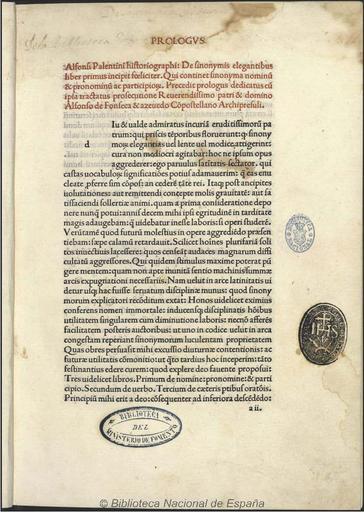 PROLOGVS.
Alfonsi Palentini historiographi: De sinonymis elegantibus
liber primus incipit fœliciter. Qui continet sinonyma nominū
& pronominū ac participioꝝ. Precedit prologus dedicatus cū
ipsa tractatus prosequtione Reuerendissimo patri & domino
Alfonso de Fonseca & azeuedo Cōpostellano Archipresuli.
d
Iu & ualde admiratus incuriā eruditissimorū pa
trum: qui priscis tēporibus floruerunt: quī sinony
moꝝ elegātias uel lente uel modice attigerint
cura non mediocri agitabar: hoc ne ipsum opus
aggrederer: ego paruulus satratis sectator. qui
castas uocabuloꝝ significatiōes potius adamauerim: quā eas enu
cleate pferre sim cōpos: an cederē tātae rei. Itaqꝫ post ancipites
inuolutationes: aut remittendi concepte molis grauitatē: aut sa
tisfaciendi sollertiæ animi. quam a prima consideratione depo
nere nunquā potui: anni decem mihi ipsi ęgritudinē in tarditate
magis adaugebam: quā uidebatur inesse laboris: si operi studerē.
Verūtamē quod futurū molestius in opere aggrediēdo præsen
tiebam: sæpe calamū retardauit. Scilicet hoines plurifariā soli
tos iniectiuis lacessere: quos censeāt audaces magnarum diffi
cultatū aggressores. Qui quidem stimulus maxime poterat pū
gere mentem: quam non apte munitā sentio machinis summæ
arcis expugnationi necessariis. Nam uelut in arce latinitatis ui
detur usqꝫ hac fuisse seruatum disciplinæ munus: quod sinony
morum explicatori recōditum extat: Honos uidelicet eximius
conferens nomen immortale: inducensqꝫ disciplinatis hōibus
utilitatem singularem cum diminutione laboris: necnō afferēs
facilitatem posteris auctoribus: ut uno in codice uelut in arca
congestam reperiant sinonymorum luculentam proprietatem
Quas obres persuasit mihi excussio diuturnæ contentionis: ac
futuræ utilitatis cōmonitio: ut quāto tardius hoc inceperim: tāto
festinantius edere curem: quod explere deo fauente proposui:
Tres uidelicet libros. Primum de nomine: pronomine: & parti
cipio. Secundum de uerbo. Tercium de cæteris ptibus oratiōis.
Principiū mihi erit a deo: cōsequenter ad inferiora descēdēdo:
a ii.
BIBLIOTECA
DEL
MINISTERIO DE FOMENTO
IHS
© Biblioteca Nacional de España